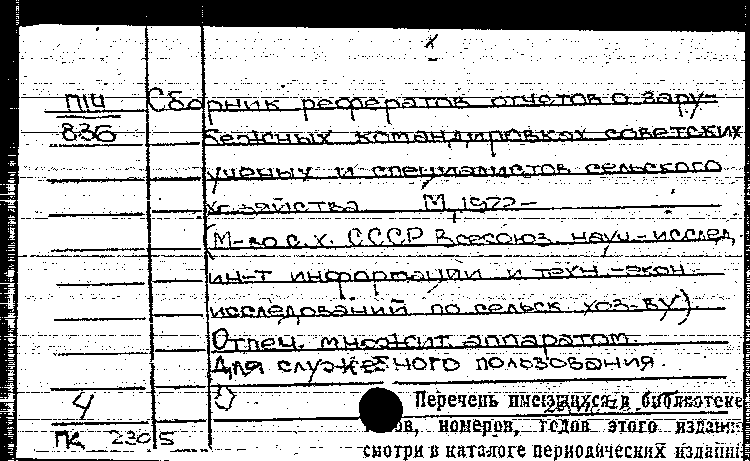 П14 Сборник рефератов отчетов о зару-
836 бежных командировках советских
ученых и специалистов сельского
хозяйства М, 1972-
(М-во с.х. СССР Всесоюз. науч.-исслед.
ин-т информации и техн.-экон.
исследований по сельск. хоз-ву)
Отпеч. множит. аппаратом.
Для служебного пользования.
4
Перечень имеющихся в библиотеке
номеров, годов этого издания
ПК 230/5
смотри в каталоге периодических издани